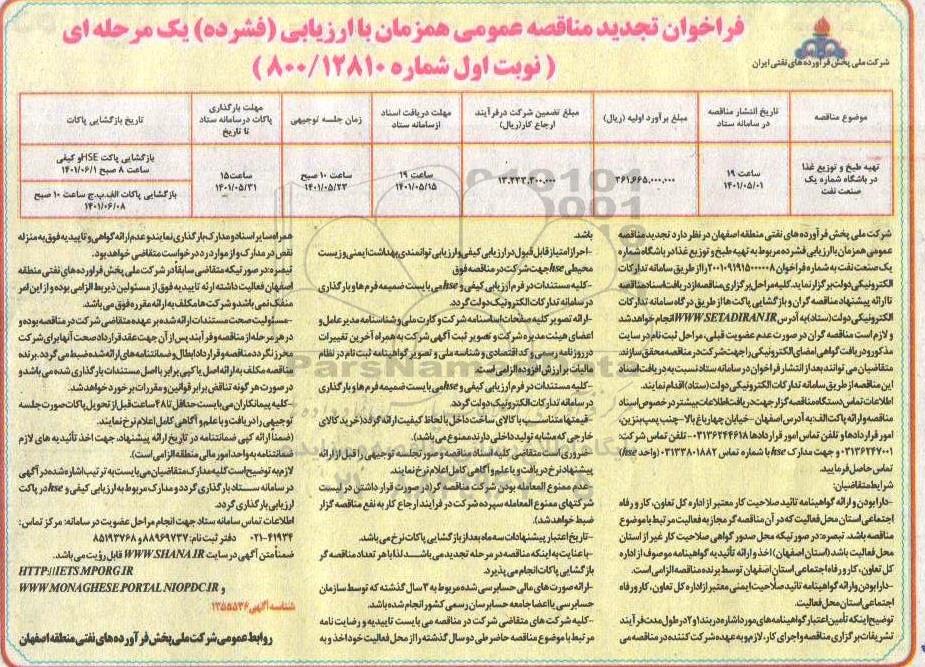 فراخوان تجدید مناقصه عمومی همزمان با ارزیابی (فشرده) یک مرحله ای
( نوبت اول شماره ۸۰۰/۱۲۸۱۰ )
شرکت ملی پخش فرآورده های نفتی ایران
موضوع مناقصه
تاریخ انتشار مناقصه در سامانه ستاد
مبلغ برآورد اولیه (ریال)
مبلغ تضمین شرکت درفرآیند ارجاع کار(ریال)
مهلت دریافت اسناد ازسامانه ستاد
زمان جلسه توجیهی
مهلت بارگذاری پاکات درسامانه ستاد تا تاریخ
تاریخ بازگشایی پاکات
تهیه طبخ و توزیع غذا در باشگاه شماره یک صنعت نفت
ساعت ۱۹ ۱۴۰۱/۰۵/۰۱
ساعت ۱۹ ۱۴۰۱/۰۵/۱۵
ساعت ۱۰ صبح ۱۴۰۱/۰۵/۲۳
ساعت۱۵ ۱۴۰۱/۰۵/۳۱
بازگشایی پاکت HSEو کیفی ساعت ۸ صبح ۱۴۰۱/۰۶/۱
بازگشایی پاکات الف.ب.ج ساعت ۱۰ صبح ۱۴۰۱/۰۶/۰۸
شرکت ملی پخش فرآورده های نفتی منطقه اصفهان در نظر دارد تجدید مناقصه
عمومی همزمان با ارزیابی فشرده مربوط به تهیه طبخ و توزیع غذا در باشگاه شماره
الکترونیکی دولت برگزار نماید.کلیه مراحل برگزاری مناقصه ازدریافت اسناد مناقصه
تا ارائه پیشنهاد مناقصه گران و بازگشایی پاکت ها از طریق درگاه سامانه تدارکات
الکترونیکی دولت (ستاد) به آدرس WWW.SETADIRAN.IR انجام خواهد شد
و لازم است مناقصه گران در صورت عدم عضویت قبلی، مراحل ثبت نام در سایت
مذکور و دریافت گواهی امضای الکترونیکی را جهت شرکت در مناقصه محقق سازند.
متقاضیان می توانند بعد از انتشار فراخوان در سامانه ستاد نسبت به دریافت اسناد
این مناقصه از طریق سامانه تدارکات الکترونیکی دولت (ستاد) اقدام نمایند.
اطلاعات تماس دستگاه مناقصه گزار جهت دریافت اطلاعات بیشتر در خصوص اسناد
مناقصه و ارائه پاکت الف:به آدرس اصفهان -خیابان چهارباغ بالا-جنب پمپ بنزین،
تماس حاصل فرمایید.
شرایط متقاضیان:
-دارا بودن و ارائه گواهینامه تائید صلاحیت کار معتبر از اداره کل تعاون، کار و رفاه
اجتماعی استان محل فعالیت که در آن مناقصه گر مجاز به فعالیت مرتبط با موضوع
مناقصه باشد. تبصره:در صورتیکه محل صدور گواهی صلاحیت کار غیر از استان
محل فعالیت باشد (استان اصفهان) اخذ و ارائه تأئیدیه گواهینامه موصوف از اداره
کل تعاون، کار و رفاه اجتماعی استان اصفهان توسط برنده مناقصه الزامی است.
-دارا بودن و ارائه گواهینامه تائید صلاحیت ایمنی معتبر ازاداره کل تعاون، کار و رفاه
اجتماعی استان محل فعالیت.
توضیح اینکه تأمین اعتبار گواهینامه های مورد اشاره در بند۱و۲ در طول مدت فرآیند
تشریفات برگزاری مناقصه و اجرای کار، لازم و به عهده شرکت کننده در مناقصه می
باشد.
-احراز امتیاز قابل قبول در ارزیابی کیفی و ارزیابی توانمندی بهداشت ایمنی و زیست
محیطی hse جهت شرکت در مناقصه فوق
-کلیه مستندات در فرم ارزیابی کیفی و hse می بایست ضمیمه فرم ها و بارگذاری
در سامانه تدارکات الکترونیک دولت گردد.
-ارائه تصویر کلیه صفحات اساسنامه شرکت و کارت ملی و شناسنامه مدیر عامل و
اعضای هیئت مدیره شرکت و تصویر ثبت آگهی شرکت به همراه آخرین تغییرات
در روزنامه رسمی و کد اقتصادی و شناسه ملی و تصویر گواهینامه ثبت نام در نظام
مالیات بر ارزش افزوده الزامی است.
-کلیه مستندات در فرم ارزیابی کیفی و hse می بایست ضمیمه فرم ها و بارگذاری
در سامانه تدارکات الکترونیک دولت گردد.
-قیمتها متناسب با کالای ساخت داخل با لحاظ کیفیت ارائه گردد(خرید کالای
خارجی که مشابه تولید داخلی دارند ممنوع می باشد).
-ضروری است متقاضی کلیه اسناد مناقصه و صورتجلسه توجیهی را قبل از ارائه
پیشنهاد نرخ دریافت و با علم و آگاهی کامل اعلام نرخ نمایند.
-عدم ممنوع المعامله بودن شرکت مناقصه گر(در صورت قرار داشتن در لیست
شرکتهای ممنوع المعامله سپرده شرکت در فرایند ارجاع کار به نفع مناقصه گزار
ضبط خواهد شد).
-تاریخ اعتبار پیشنهادات سه ماه بعد از بازگشایی پاکات نرخ می باشد.
-با عنایت به اینکه مناقصه در مرحله تجدید می باشد لذا با هر تعداد مناقصه گر
بازگشایی پاکات انجام می پذیرد.
-ارائه صورت های مالی حسابرسی شده مربوط به ۳ سال گذشته که توسط سازمان
حسابرسی یا اعضا جامعه حسابرسان رسمی کشور انجام شده باشد.
-کلیه شرکت های متقاضی شرکت در مناقصه می بایست تاییدیه و رضایت نامه
مرتبط با موضوع مناقصه حاضر طی دو سال گذشته را از محل فعالیت خود اخذ و به
همراه سایر اسناد و مدارک بارگذاری نمایند و عدم ارائه گواهی و تاییدیه فوق به منزله
نقص در مدارک و از موارد رد درخواست متقاضی خواهد بود.
تبصره:در صورتیکه متقاضی سابقا در شرکت ملی پخش فراورده های نفتی منطقه
اصفهان فعالیت داشته ارئه تاییدیه فوق از مسئولین ذیربط الزامی بوده و از این امر
منفک نمی باشد و شرکت ها مکلف به ارائه مقرره فوق می باشد.
-مسئولیت صحت مستندات ارائه شده بر عهده متقاضی شرکت در مناقصه بوده و
در هر مرحله از مناقصه و فرآیند پس از آن جهت عقد قرارداد صحت آنها برای شرکت
محرز نگردد مناقصه و قرارداد ابطال و ضمانتنامه های ارائه شده ضبط می گردد. برنده
مناقصه مکلف به ارائه اصل یا کپی برابر با اصل مستندات بارگذاری شده می باشد و
در صورت هر گونه تناقض برابر قوانین و مقررات برخورد خواهد شد.
-کلیه پیمانکاران می بایست حداقل تا ۴۸ ساعت قبل از تحویل پاکات صورت جلسه
توجیهی را دریافت و با علم و آگاهی کامل اعلام نرخ نمایند.
(ضمنا ارائه کپی ضمانتنامه در تاریخ ارائه پیشنهاد، جهت اخذ تأئیدیه های لازم
ضمانتنامه به واحد امور مالی منطقه الزامی است).
لازم به توضیح است کلیه مدارک متقاضیان می بایست به ترتیب اشاره شده در آگهی
در سامانه ستاد بارگذاری گردد و مدارک مربوط به ارزیابی کیفی و hse در پاکت
ارزیابی بارگذاری گردد.
اطلاعات تماس سامانه ستاد جهت انجام مراحل عضویت در سامانه: مرکز تماس:
۰۲۱-۴۱۹۳۴ دفتر ثبت نام: ۸۸۹۶۹۷۳۷ و ۸۵۱۹۳۷۶۸
ضمنا متن آگهی در سایت WWW.SHANA.IR قابل رؤیت می باشد.
HTTP://IETS.MPORG.IR
و WWW.MONAGHESE.PORTAL.NIOPDC.IR
شناسه آگهی ۱۳۵۵۵۳۶
روابط عمومی شرکت ملی پخش فرآورده های نفتی منطقه اصفهان